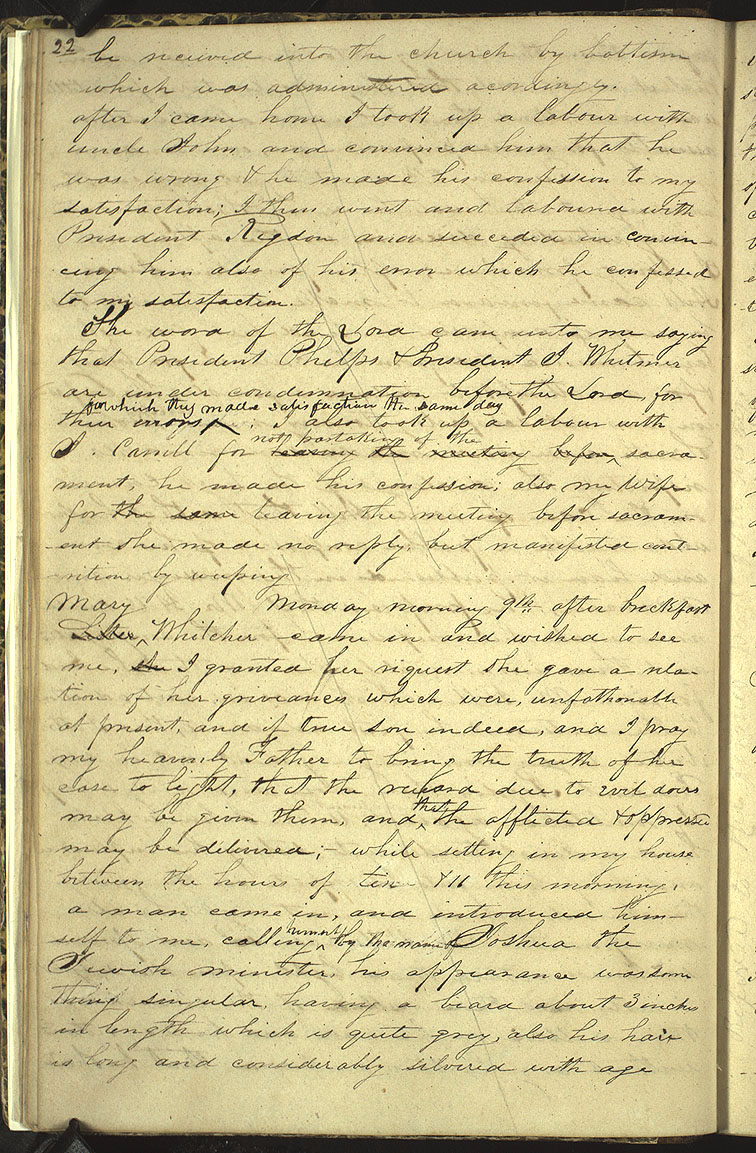 22
be received into the church by babtism
which was administered acordingly.
after I came home I took up a labour with
uncle John and convinced him that he
was wrong & he made his confession to my
satisfaction; I then went and laboured with
President Rigdon and succeded in convin-
cing him also of his error which he confessed
to my satisfaction.
The word of the Lord cam unto me saying
that President Phelps & President J. Whitmer
are under condemnation before the Lord, for
for which they made satisfaction the same day
their errors; I also took up a labour with
not partaking of the
J. Carrill for leaving the meeting before, sacra
ment, he made his confession; also my wife
for the same leaving the meeting before sacram-
-ent she made no reply, but manifested cont-
-rition by weeping
Mary Monday morning 9th after breckfast
Sister, Whitcher came in and wished to see
me, she I granted her request she gave a rela-
tion of her griveances which were, unfathonable
at present, and if true sore indeed, and I pray
my heavenly Father to bring the truth of her
case to light, that the reward due to evil doers
may be given them, and
that
the afflicted & oppressed
may be delivered;- while setting in my house
between the hours of ten & 11 this morning,
a man came in, and introduced him-
self to me, calling
himself
by the name of Joshua the
Jewish minister, his appearance was some
thing singular, having a beard about 3 inches
in length which is quite grey, also his hair
is long and considerably silvered with age